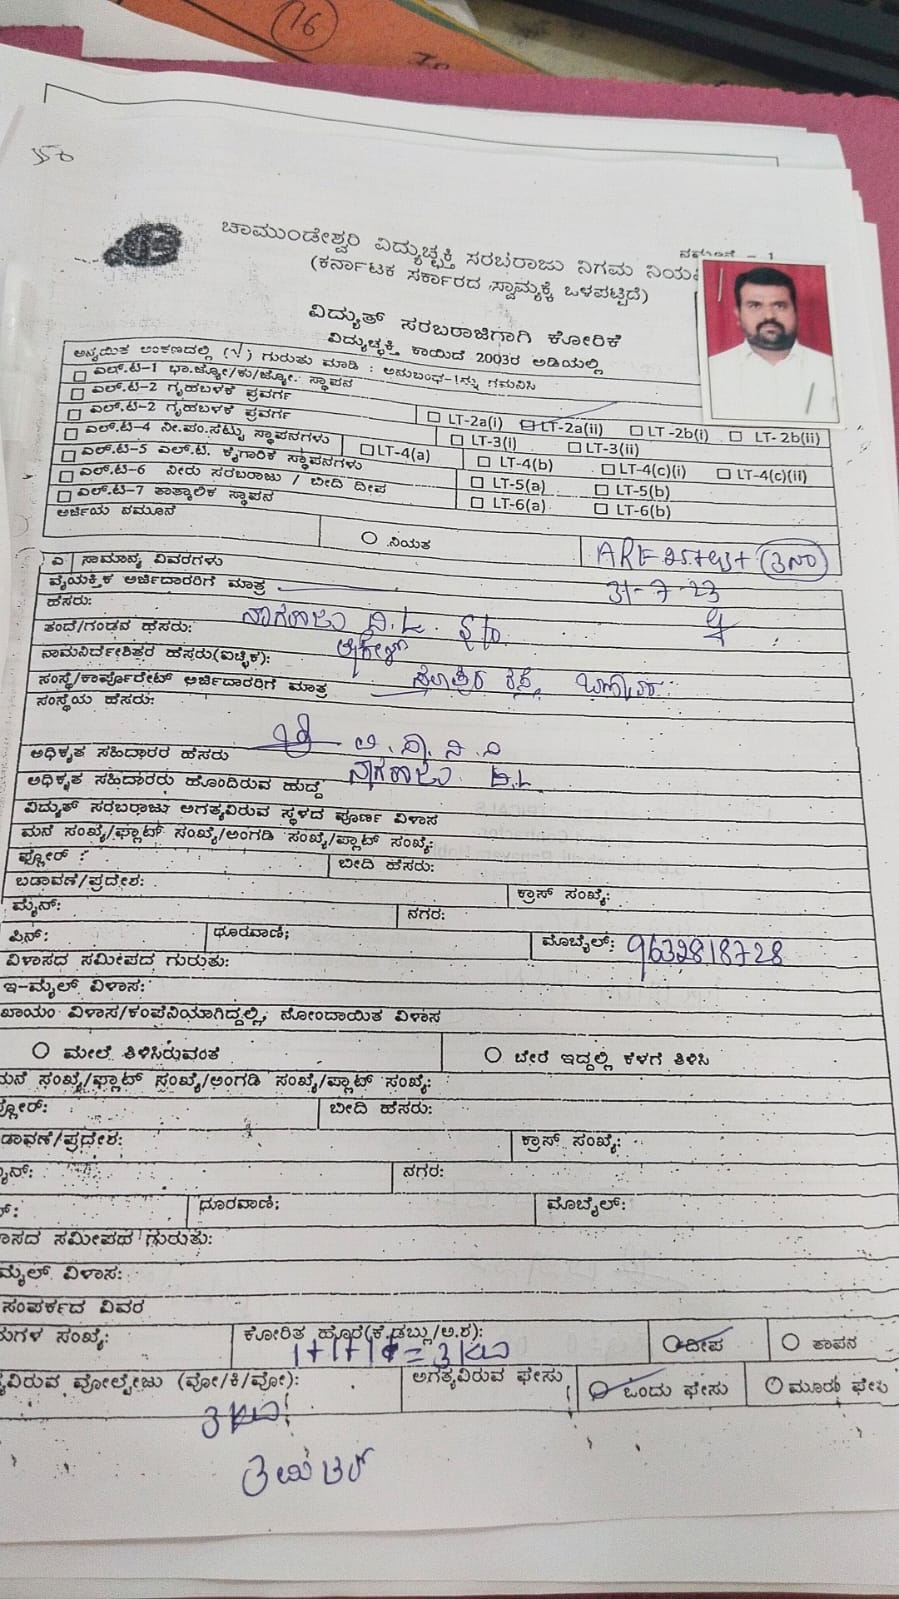 16
ನಮೂನೆ - 1
ಚಾಮುಂಡೇಶ್ವರಿ ವಿದ್ಯುಚ್ಛಕ್ತಿ ಸರಬರಾಜು ನಿಗಮ
(ಕರ್ನಾಟಕ ಸರ್ಕಾರದ ಸ್ವಾಮ್ಯಕ್ಕೆ ಒಳಪಟ್ಟಿದೆ)
ವಿದ್ಯುತ್ ಸರಬರಾಜಿಗಾಗಿ ಕೋರಿಕೆ
ವಿದ್ಯುಚ್ಛಕ್ತಿ ಕಾಯಿದೆ 2003ರ ಅಡಿಯಲ್ಲಿ
ಅನ್ವಯಿತ ಅಂಕಣದಲ್ಲಿ (√) ಗುರುತು ಮಾಡಿ : ಅನುಬಂಧ-1ನ್ನು ಗಮನಿಸಿ
ಎಲ್.ಟಿ-1 ಭಾ.ಜ್ಯೋ/ಕು/ಜ್ಯೋ. ಸ್ಥಾಪನ
ಎಲ್.ಟಿ-2 ಗೃಹಬಳಕೆ ಪ್ರವರ್ಗ
ಎಲ್.ಟಿ-2 ಗೃಹಬಳಕೆ ಪ್ರವರ್ಗ LT-2a(i) LT-2a(ii) LT-2b(i) LT-2b(ii)
ಎಲ್.ಟಿ-4 ನೀ.ಪಂ.ಸೆಟ್ಟು ಸ್ಥಾಪನಗಳು LT-4(a) LT-3(i) LT-3(ii)
ಎಲ್.ಟಿ-5 ಎಲ್.ಟಿ. ಕೈಗಾರಿಕೆ ಸ್ಥಾಪನಗಳು LT-4(b) LT-4(c)(i) LT-4(c)(ii)
ಎಲ್.ಟಿ-6 ನೀರು ಸರಬರಾಜು / ಬೀದಿ ದೀಪ LT-5(a) LT-5(b)
ಎಲ್.ಟಿ-7 ತಾತ್ಕಾಲಿಕ ಸ್ಥಾಪನ LT-6(a) LT-6(b)
ಅರ್ಜಿಯ ನಮೂನೆ ನಿಯತ
ಎ ಸಾಮಾನ್ಯ ವಿವರಗಳು
ವೈಯಕ್ತಿಕ ಅರ್ಜಿದಾರರಿಗೆ ಮಾತ್ರ 31-7-23
ಹೆಸರು: ನಾಗರಾಜು S/o
ತಂದೆ/ಗಂಡನ ಹೆಸರು:
ನಾಮನಿರ್ದೇಶಿತರ ಹೆಸರು(ಐಚ್ಛಿಕ):
ಸಂಸ್ಥೆ/ಕಾರ್ಪೊರೇಟ್ ಅರ್ಜಿದಾರರಿಗೆ ಮಾತ್ರ
ಸಂಸ್ಥೆಯ ಹೆಸರು:
ಅಧಿಕೃತ ಸಹಿದಾರರ ಹೆಸರು
ಅಧಿಕೃತ ಸಹಿದಾರರು ಹೊಂದಿರುವ ಹುದ್ದೆ ನಾಗರಾಜು
ವಿದ್ಯುತ್ ಸರಬರಾಜು ಅಗತ್ಯವಿರುವ ಸ್ಥಳದ ಪೂರ್ಣ ವಿಳಾಸ
ಮನೆ ಸಂಖ್ಯೆ/ಫ್ಲಾಟ್ ಸಂಖ್ಯೆ/ಅಂಗಡಿ ಸಂಖ್ಯೆ/ಪ್ಲಾಟ್ ಸಂಖ್ಯೆ:
ಫ್ಲೋರ್ : ಬೀದಿ ಹೆಸರು:
ಬಡಾವಣೆ/ಪ್ರದೇಶ: ಕ್ರಾಸ್ ಸಂಖ್ಯೆ:
ಮೈನ್: ನಗರ:
ಪಿನ್: ಧೂರವಾಣಿ; ಮೊಬೈಲ್: 9632818728
ವಿಳಾಸದ ಸಮೀಪದ ಗುರುತು:
ಇ-ಮೈಲ್ ವಿಳಾಸ:
ಖಾಯಂ ವಿಳಾಸ/ಕಂಪೆನಿಯಾಗಿದ್ದಲ್ಲಿ, ನೋಂದಾಯಿತ ವಿಳಾಸ
ಮೇಲೆ ತಿಳಿಸಿರುವಂತೆ ಬೇರೆ ಇದ್ದಲ್ಲಿ ಕೆಳಗೆ ತಿಳಿಸಿ
ಮನೆ ಸಂಖ್ಯೆ/ಫ್ಲಾಟ್ ಸಂಖ್ಯೆ/ಅಂಗಡಿ ಸಂಖ್ಯೆ/ಪ್ಲಾಟ್ ಸಂಖ್ಯೆ:
ಫ್ಲೋರ್: ಬೀದಿ ಹೆಸರು:
ಡಾವಣೆ/ಪ್ರದೇಶ: ಕ್ರಾಸ್ ಸಂಖ್ಯೆ:
ಮೈನ್: ನಗರ:
ಧೂರವಾಣಿ; ಮೊಬೈಲ್:
ಾಸದ ಸಮೀಪದ ಗುರುತು:
ಮೈಲ್ ವಿಳಾಸ:
ಸಂಪರ್ಕದ ವಿವರ
ುಗಳ ಸಂಖ್ಯೆ: ಕೋರಿತ ಹೊರೆ(ಕೆ.ಡಬ್ಲ್ಯು/ಅ.ಶ): 1+1+1=3KW ದೀಪ ತಾಪನ
್ಯವಿರುವ ವೋಲ್ಟೇಜು (ವೋ/ಕಿ/ವೋ): ಅಗತ್ಯವಿರುವ ಫೇಸು ಒಂದು ಫೇಸು ಮೂರು ಫೇಸು
3KW